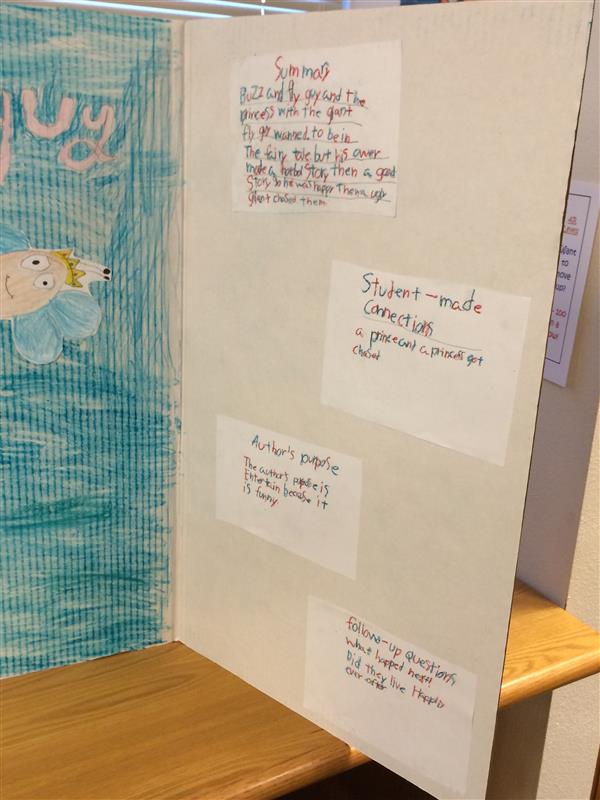 guy
Summary
Buzz and fly guy and the
princess with the giant
fly guy wanted to be in
The fairy tale but his
made a horbol story then a good
Story so he was happy Then a ugly
giant chased them
Student-made
Connections
a prince and a princess got
chased
Author's purpose
The author's purpose is
Entertain because it
is funny
follow-up questions
what happed next
Did they live Happily
ever after
Want
to
move
up?